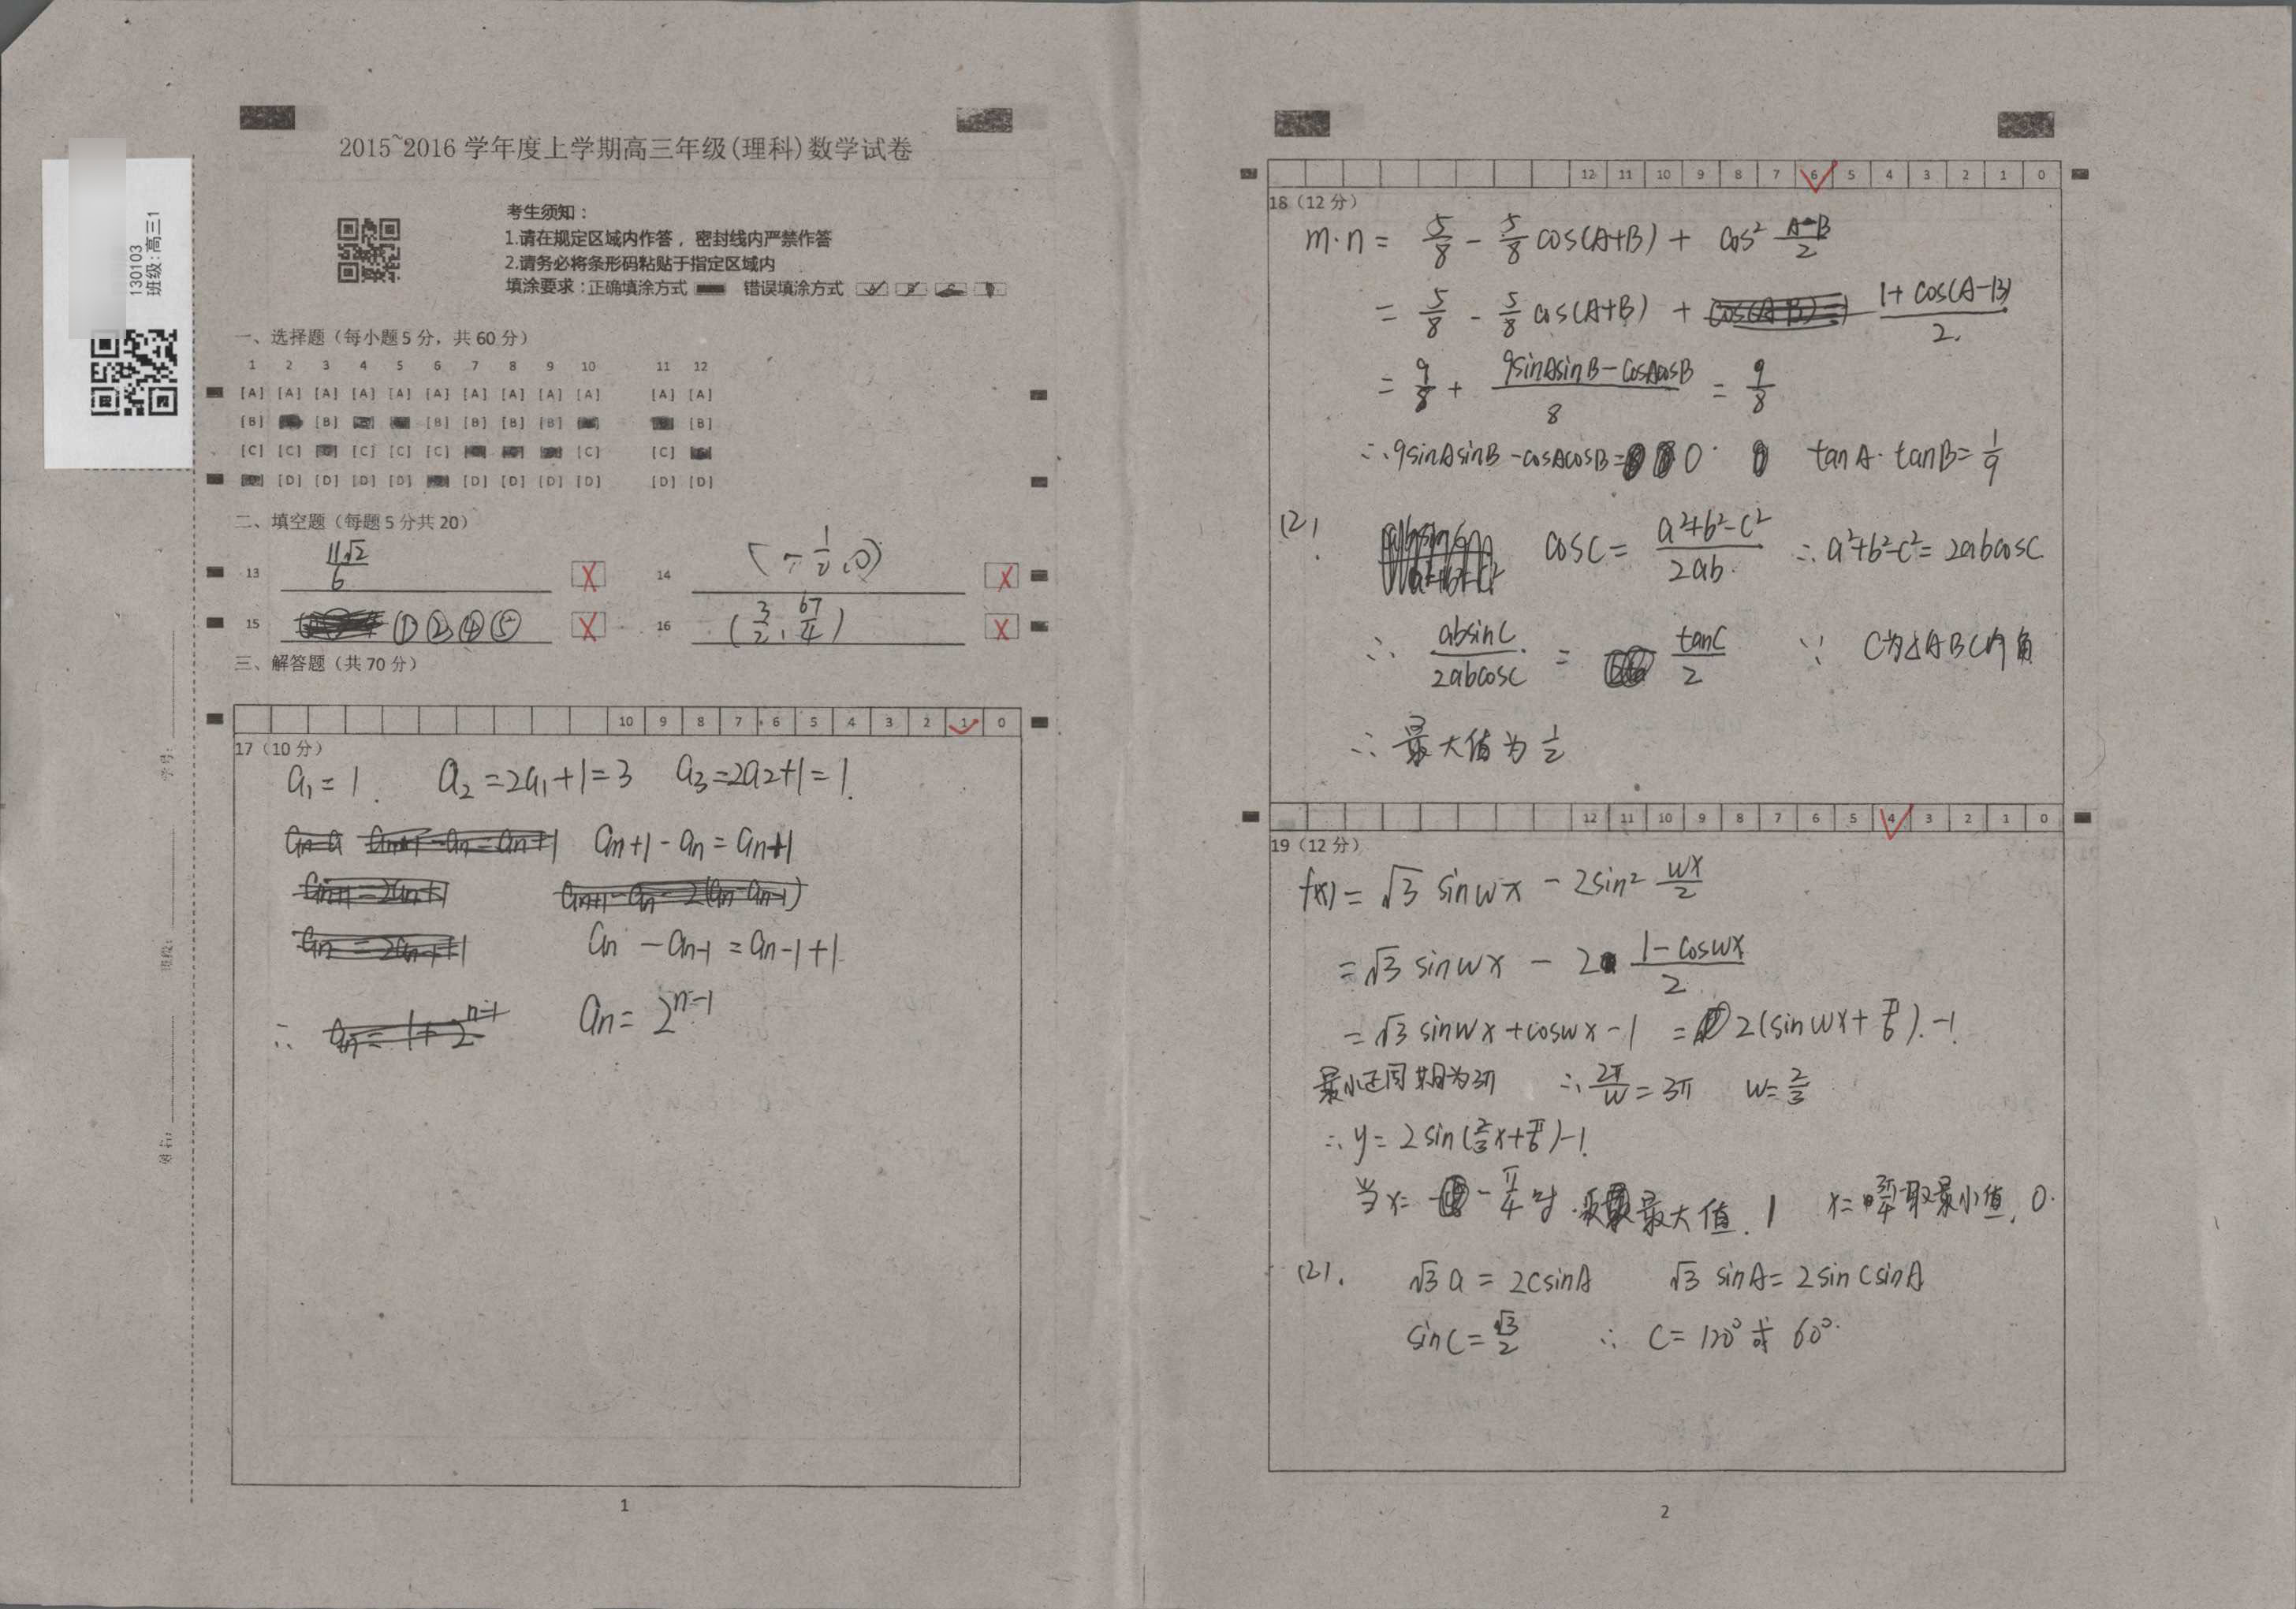 130103
班级:高三1
2015~2016 学年度上学期高三年级(理科)数学试卷
考生须知：
1.请在规定区域内作答，密封线内严禁作答
2.请务必将条形码粘贴于指定区域内
填涂要求：正确填涂方式 错误填涂方式
一、选择题（每小题5分，共60分）
1 2 3 4 5 6 7 8 9 10 11 12
[A] [A] [A] [A] [A] [A] [A] [A] [A] [A] [A] [A]
[B] [B] [B] [B] [B] [B] [B]
[C] [C] [C] [C] [C] [C] [C]
[D] [D] [D] [D] [D] [D] [D] [D] [D] [D]
二、填空题（每题5分共20）
13 11√2/6 X 14 (-1/2,0) X
15 ①②④⑤ X 16 (3/2, 67/4) X
三、解答题（共70分）
10 9 8 7 6 5 4 3 2 1 0
17（10分）
a₁=1. a₂=2a₁+1=3 a₃=2a₂+1=1.
an+1-an=an+1
an-an-1=an-1+1
∴ an=2^(n-1)
学号:
班级:
姓名:
1
12 11 10 9 8 7 6 5 4 3 2 1 0
18（12分）
m·n= 5/8 - 5/8 cos(A+B) + cos² (A-B)/2
= 5/8 - 5/8 cos(A+B) + (1+cos(A-B))/2.
= 9/8 + (9sinAsinB-cosAcosB)/8 = 9/8
∴9sinAsinB-cosAcosB=0. tanA·tanB=1/9
(2). cosC= (a²+b²-c²)/2ab. ∴a²+b²-c²=2abcosC
∴ absinC/2abcosC = tanC/2 ∵ C为△ABC内角
∴ 最大值为 1/2
12 11 10 9 8 7 6 5 4 3 2 1 0
19（12分）
f(x)= √3 sinwx - 2sin² wx/2
=√3 sinwx - 2 (1-coswx)/2
=√3 sinwx+coswx-1 = 2(sinwx+π/6).-1
最小正周期为3π ∴ 2π/w=3π w=2/3
∴y=2sin(2/3x+π/6)-1.
当x= -π/4时.取最大值.1 x=3π/4取最小值.0.
(2). √3 a = 2csinA √3 sinA=2sinCsinA
sinC=√3/2 ∴ C=120°或 60°.
2